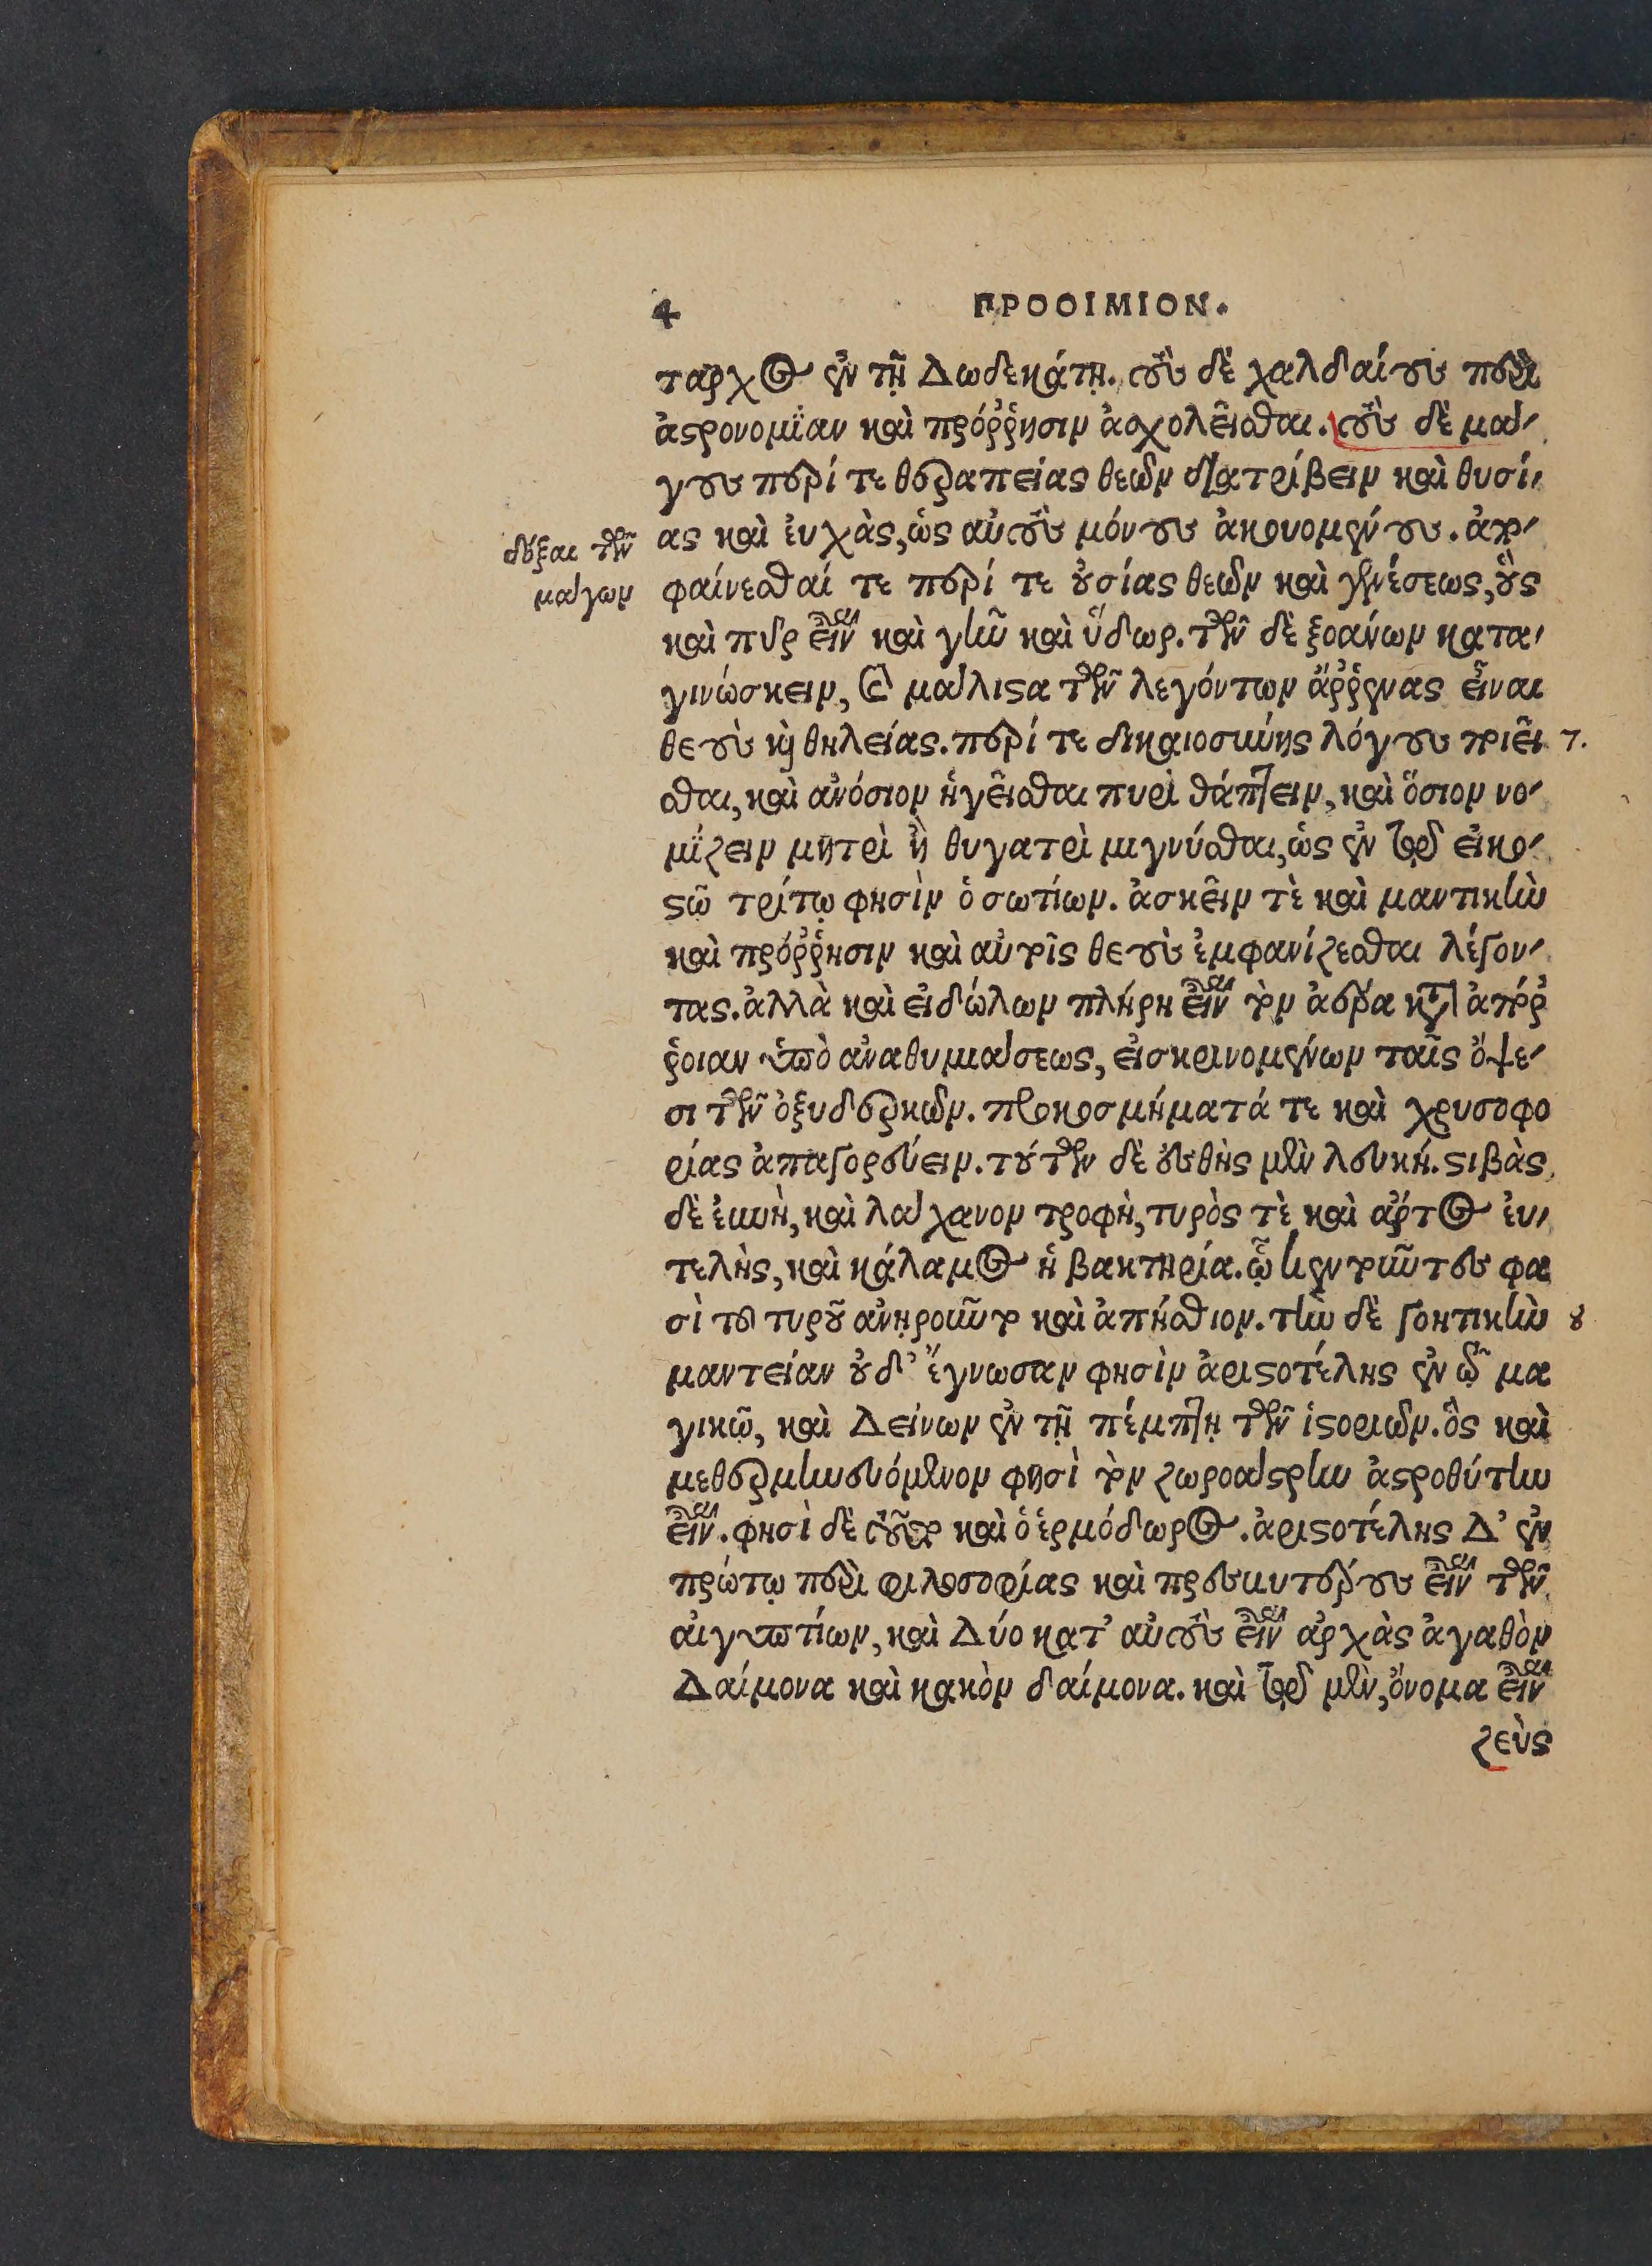 4 ΠΡΟΟΙΜΙΟΝ.
ταρχος ἐν τῇ Δωδεκάτῃ. τοὺς δὲ χαλδαίους περὶ
ἀστρονομίαν καὶ πρόῤῥησιν ἀσχολεῖσθαι. τοὺς δὲ μά-
γους περί τε θεραπείας θεῶν διατρίβειν καὶ θυσί-
ας καὶ ἐυχὰς, ὡς αὐτοὺς μόνους ἀκουομένους. ἀπο-
δόξαι τῶν
μάγων
φαίνεσθαί τε περί τε οὐσίας θεῶν καὶ γενέσεως, οὓς
καὶ πῦρ εἶναι καὶ γῆν καὶ ὕδωρ. τῶν δὲ ξοάνων κατα-
γινώσκειν, καὶ μάλιστα τῶν λεγόντων ἄῤῥενας εἶναι
θεοὺς καὶ θηλείας. περί τε δικαιοσύνης λόγους ποιεῖ 7.
σθαι, καὶ ἀνόσιον ἡγεῖσθαι πυρὶ θάπτειν, καὶ ὅσιον νο-
μίζειν μητρὶ ἢ θυγατρὶ μιγνύσθαι, ὡς ἐν τῷ εἰκο-
στῷ τρίτῳ φησὶν ὁ σωτίων. ἀσκεῖν τὲ καὶ μαντικὴν
καὶ πρόῤῥησιν καὶ αὑτοῖς θεοὺς ἐμφανίζεσθαι λέγον-
τας. ἀλλὰ καὶ εἰδώλων πλήρη εἶναι τὸν ἀέρα κατ' ἀπόῤ
ῥοιαν ὑπὸ ἀναθυμιάσεως, εἰσκρινομένων ταῖς ὄψε-
σι τῶν ὀξυδερκῶν. προκοσμήματά τε καὶ χρυσοφο
ρίας ἀπαγορεύειν. τούτων δὲ ἐσθὴς μὲν λευκή. στιβὰς
δὲ ἐυνὴ, καὶ λάχανον τροφὴ, τυρὸς τὲ καὶ ἄρτος ἐυ-
τελὴς, καὶ κάλαμος ἡ βακτηρία. ᾧ κεντοῦντες φα
σὶ τοῦ τυροῦ ἀνῃροῦντο καὶ ἀπήσθιον. τὴν δὲ γοητικὴν 8
μαντείαν οὐδ' ἔγνωσαν φησὶν ἀριστοτέλης ἐν τῷ μα
γικῷ, καὶ Δείνων ἐν τῇ πέμπτῃ τῶν ἱστοριῶν. ὃς καὶ
μεθερμηνευόμενον φησὶ τὸν ζωροάστρην ἀστροθύτην
εἶναι. φησὶ δὲ τοῦτο καὶ ὁ ἑρμόδωρος. ἀριστοτέλης Δ' ἐν
πρώτῳ περὶ φιλοσοφίας καὶ πρεσβυτέρους εἶναι τῶν
αἰγυπτίων, καὶ Δύο κατ' αὐτοὺς εἶναι ἀρχὰς ἀγαθὸν
Δαίμονα καὶ κακὸν δαίμονα. καὶ τῷ μὲν, ὄνομα εἶναι
ζεὺς